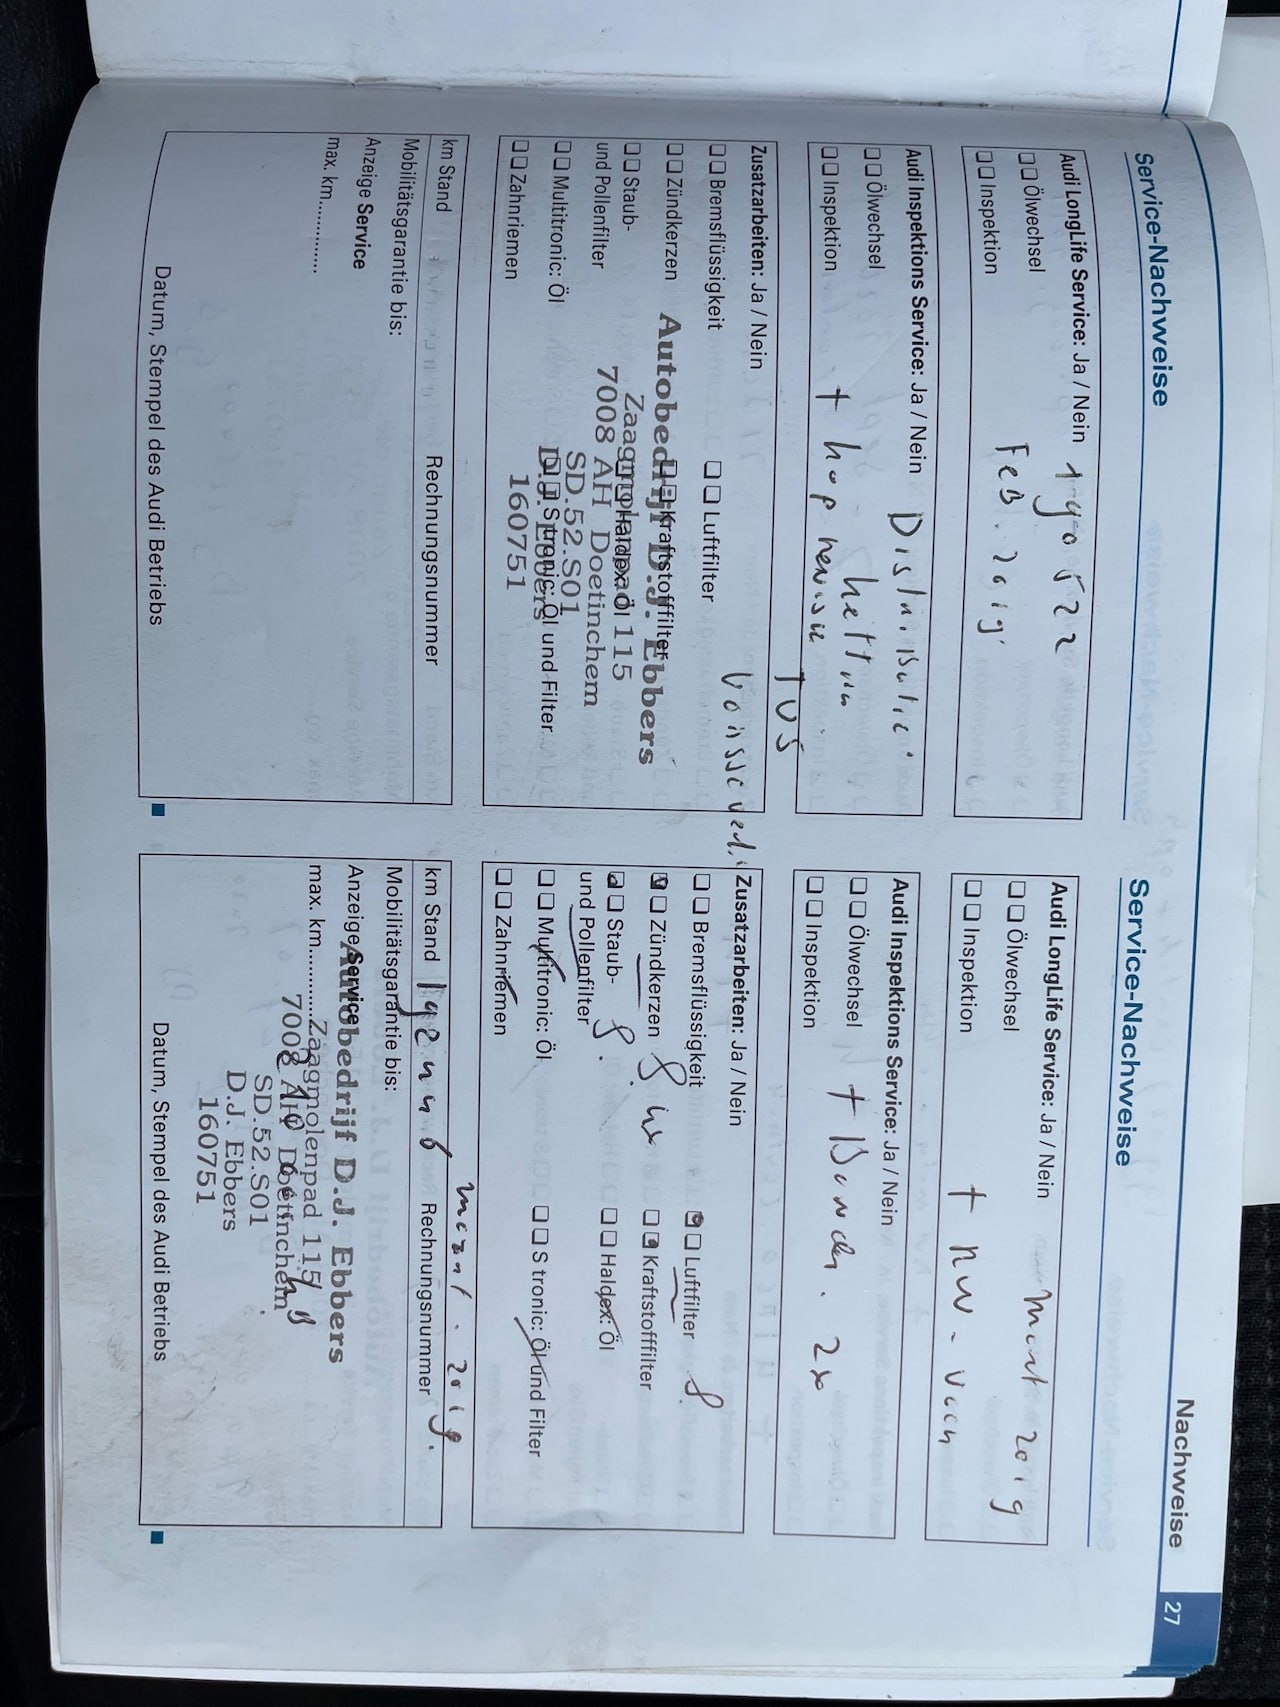 Nachweise 27
Service-Nachweise
Audi LongLife Service: Ja / Nein
Ölwechsel
Inspektion
FeB. 2019
Audi Inspektions Service: Ja / Nein
Ölwechsel
Inspektion
+ kop revisie
TUS
Zusatzarbeiten: Ja / Nein
Bremsflüssigkeit
Luftfilter
Zündkerzen
Kraftstofffilter
Staub-
und Pollenfilter
Haldex: Öl
Multitronic: Öl
S tronic: Öl und Filter
Zahnriemen
Autobedrijf D.J. Ebbers
Zaagmolenpad 115
7008 AH Doetinchem
SD.52.S01
D.J. Ebbers
160751
km Stand
Rechnungsnummer
Mobilitätsgarantie bis:
Anzeige Service
max. km.............
Datum, Stempel des Audi Betriebs
Service-Nachweise
Audi LongLife Service: Ja / Nein
Ölwechsel
2019
Inspektion
Audi Inspektions Service: Ja / Nein
Ölwechsel
Inspektion
2x
Zusatzarbeiten: Ja / Nein
Bremsflüssigkeit
Luftfilter
Zündkerzen
Kraftstofffilter
Staub-
und Pollenfilter
Haldex: Öl
Multitronic: Öl
S tronic: Öl und Filter
Zahnriemen
2019.
km Stand
Rechnungsnummer
Mobilitätsgarantie bis:
Anzeige Service
max. km.............
Autobedrijf D.J. Ebbers
Zaagmolenpad 115
7008 AH Doetinchem
SD.52.S01
D.J. Ebbers
160751
Datum, Stempel des Audi Betriebs